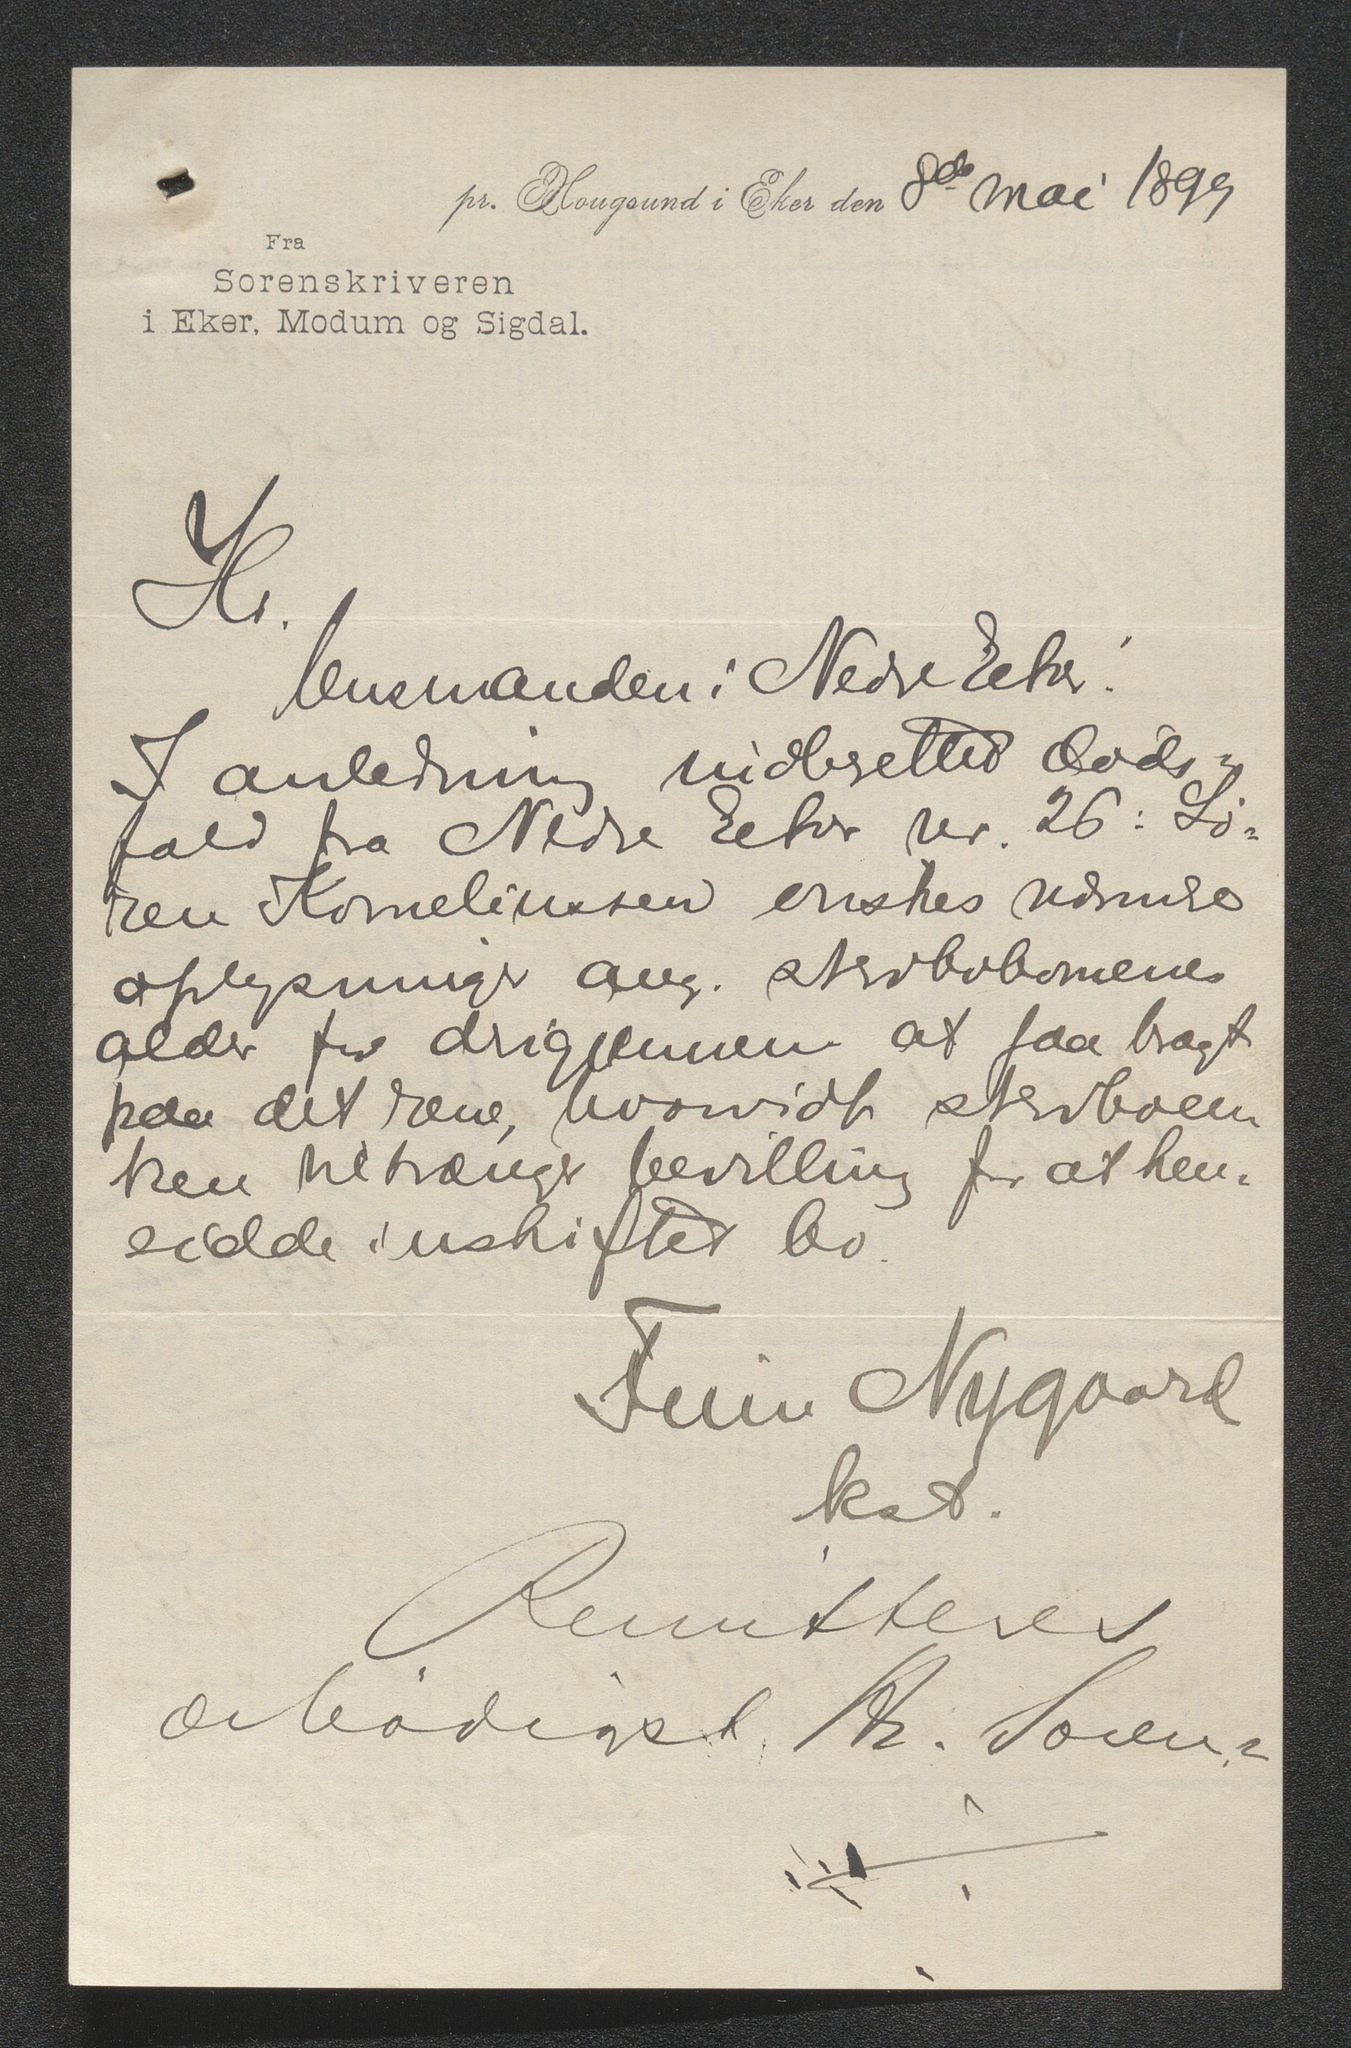 pr. Hougsund i Eker den 8de mai 1899
Fra
Sorenskriveren
i Eker, Modum og Sigdal.
Hr.
lensmanden i Nedre Eeker!
I anledning indberettet döds-
fald fra Nedre Eeker nr. 26: Sö-
ren Korneliussen önskes nærmere
oplysninger ang. sterbobörnenes
alder for derigjennem at faa bragt
paa det rene, hvorvidt sterboen-
ken tiltrænger bevilling for at hen-
sidde i uskiftet bo.
Nygaard
kst.
Remitteres
ærbödigst Hr. Soren-